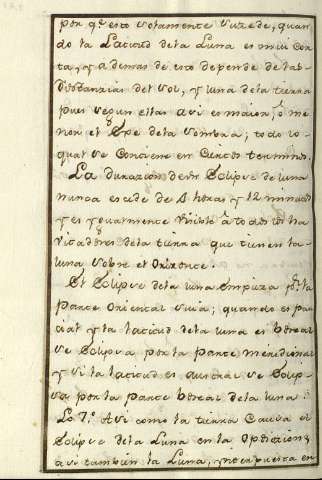 por qe esto solamente suzede, quan
do la Latitud dela Luna es mui Cor
ta, y ademas de esto depende de las
distanzias del Sol, y Luna dela tierra
pues segun ellas asi es maior, ô me
nor el Exe dela Sombra; todo lo
qual se Contiene en Ciertos terminos.
La durazion deun Eclipse de luna
nunca escede de 4 horas y 12 minutos
y es ygualmente visible â todos los ha
vitadores dela tierra que tienen la
luna sobre el Orizonte.
El Eclipse dela luna empieza por la
Parte Oriental suia; quando es par
cial y la latitud dela luna es boreal
se Eclipsa por la parte meridional
y si la latitud es austral se Eclip
sa por la parte boreal dela luna.
Lo 7º Asi como la tierra Causa el
Eclipse dela Luna en la Oposicion,
asi tambien la Luna, ynterpuesta en